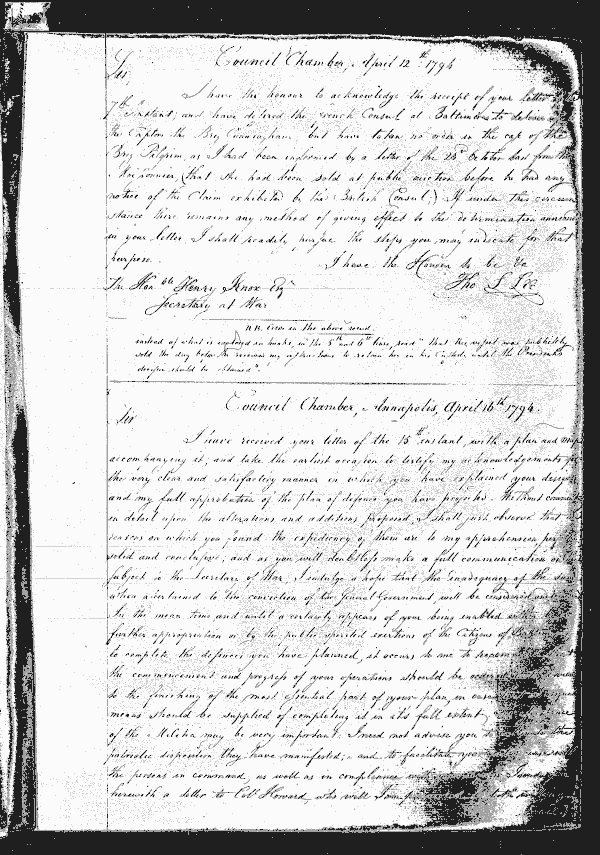 Council Chamber, April 12th 1794
Sir
I have the honour to acknowledge the receipt of your letter
7th Instant, and have desired the French Consul at Baltimore to deliver
the Capton the Brig Cunningham, but have taken no order in the case of the
Brig Pilgrim, as I had been informed by a letter of the 23d October last from the
that she had been sold at public auction before he had any
notice of the Claim exhibited by the British Consul.) If under this circum
stance there remains any method of giving effect to the determination announced
in your letter I shall readily pursue the steps you may indicate for that
purpose. I have the Honour to be &c
The Honble Henry Knox Esqr Tho S Lee
Secretary at War
N.B. Error in the above record
instead of what is enclosed in hooks, in the 5th and 6th lines, read "that the vessel was publickly
sold the day before he received my instructions to retain her in his Custody, until the Presidents
decision should be obtained".
Council Chamber, Annapolis, April 16th 1794.
Sir
I have received your letter of the 15th instant, with a plan and map
accompanying it; and take the earliest occasion to testify my acknowledgements for
the very clear and satisfactory manner in which you have explained your designs
and my full approbation of the plan of defence you have projected. Without
in detail upon the alterations and additions proposed, I shall just observe that
reasons on which you found the expediency of them are to my apprehension
solid and conclusive, and as you will doubtless make a full communication on
subject to the Secretary of War, I indulge a hope that the inadequacy of the
when ascertained to the conviction of the General Government will be considered
In the mean time and until a certainty appears of your being enabled
further appropriation or by the public spirited exertions of the Citizens of
to complete the defences you have planned, it occurs to me to
the commencement and progress of your operations should be
to the finishing of the most essential part of your plan, in case
means should be supplied of completing it in its full extent
of the Militia may be very important. I need not advise you
patriotic disposition they have manifested; and to facilitate
the persons in command, as well as in compliance with
herewith a letter to Coll Howard, who will